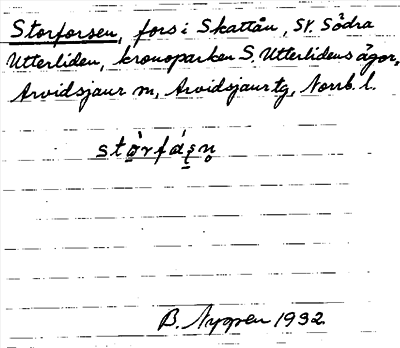 Storforsen, fors i Skattån, SV. Södra
Utterliden, kronoparken S. Utterlidens ägor,
Arvidsjaur m, Arvidsjaur tg, Norrb. l.
B. Nygren 1932